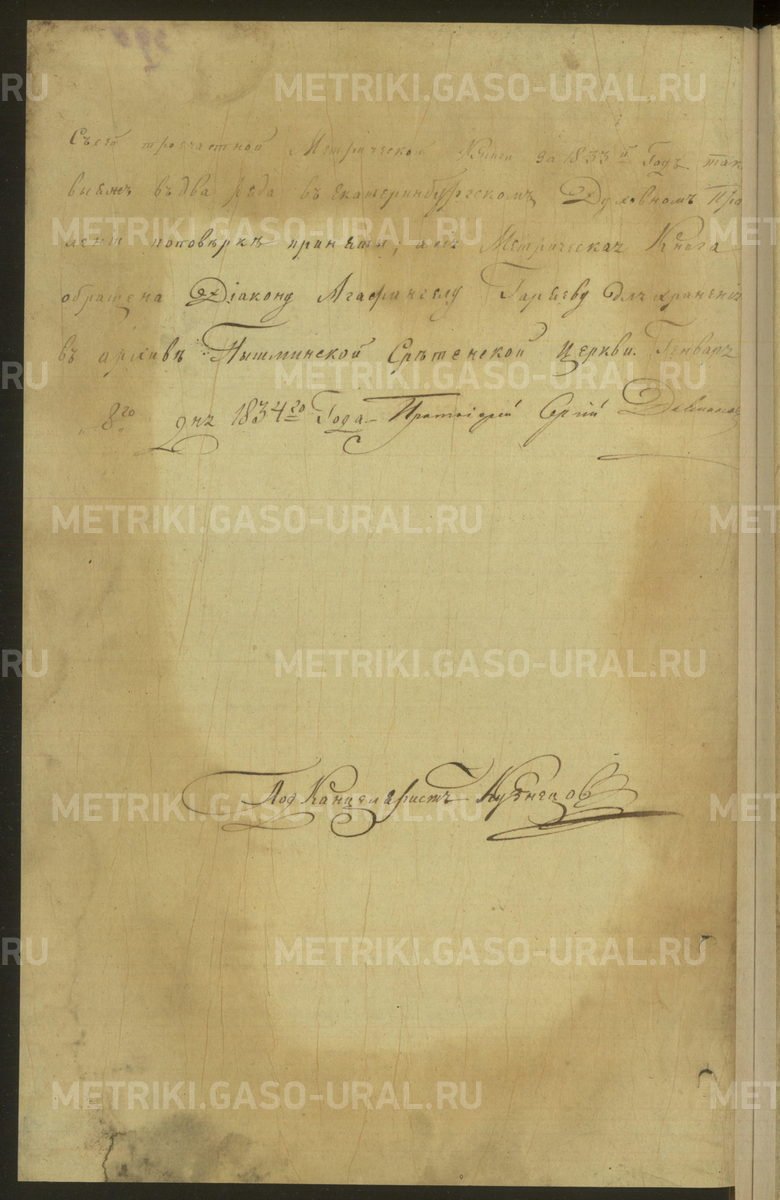 Съсей троечастной Метрической Книги за 1833й Годъ так
выежъ въ два ряда въ Екатеринбургскомъ Духовномъ Пра
лении по повѣркѣ приняты; а сія Метрическая Книга
обращена Діакону Агафангелу Гаряеву для храненія
въ архивѣ Пышминской Срѣтенской Церкви. Генваря
8го дня 1834го Года. Протоіерей Сергій
Под Канцеляристъ Кузнецов
METRIKI.GASO-URAL.RU